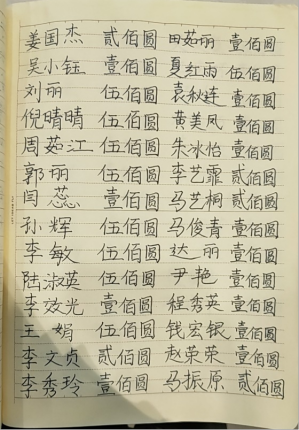 姜国杰 贰佰圆 田茹丽 壹佰圆
吴小钰 壹佰圆 夏红雨 伍佰圆
刘丽 伍佰圆 袁秋连 壹佰圆
倪晴晴 伍佰圆 黄美凤 壹佰圆
周茹江 伍佰圆 朱冰怡 壹佰圆
郭丽 伍佰圆 李艺霏 贰佰圆
闫蕊 壹佰圆 马艺桐 贰佰圆
孙辉 伍佰圆 马俊青 壹佰圆
李敏 伍佰圆 达丽 壹佰圆
陆淑英 伍佰圆 尹艳 壹佰圆
李效光 壹佰圆 程秀英 壹佰圆
王娟 伍佰圆 钱宏银 壹佰圆
李文贞 贰佰圆 赵荣荣 壹佰圆
李秀玲 壹佰圆 马振原 贰佰圆